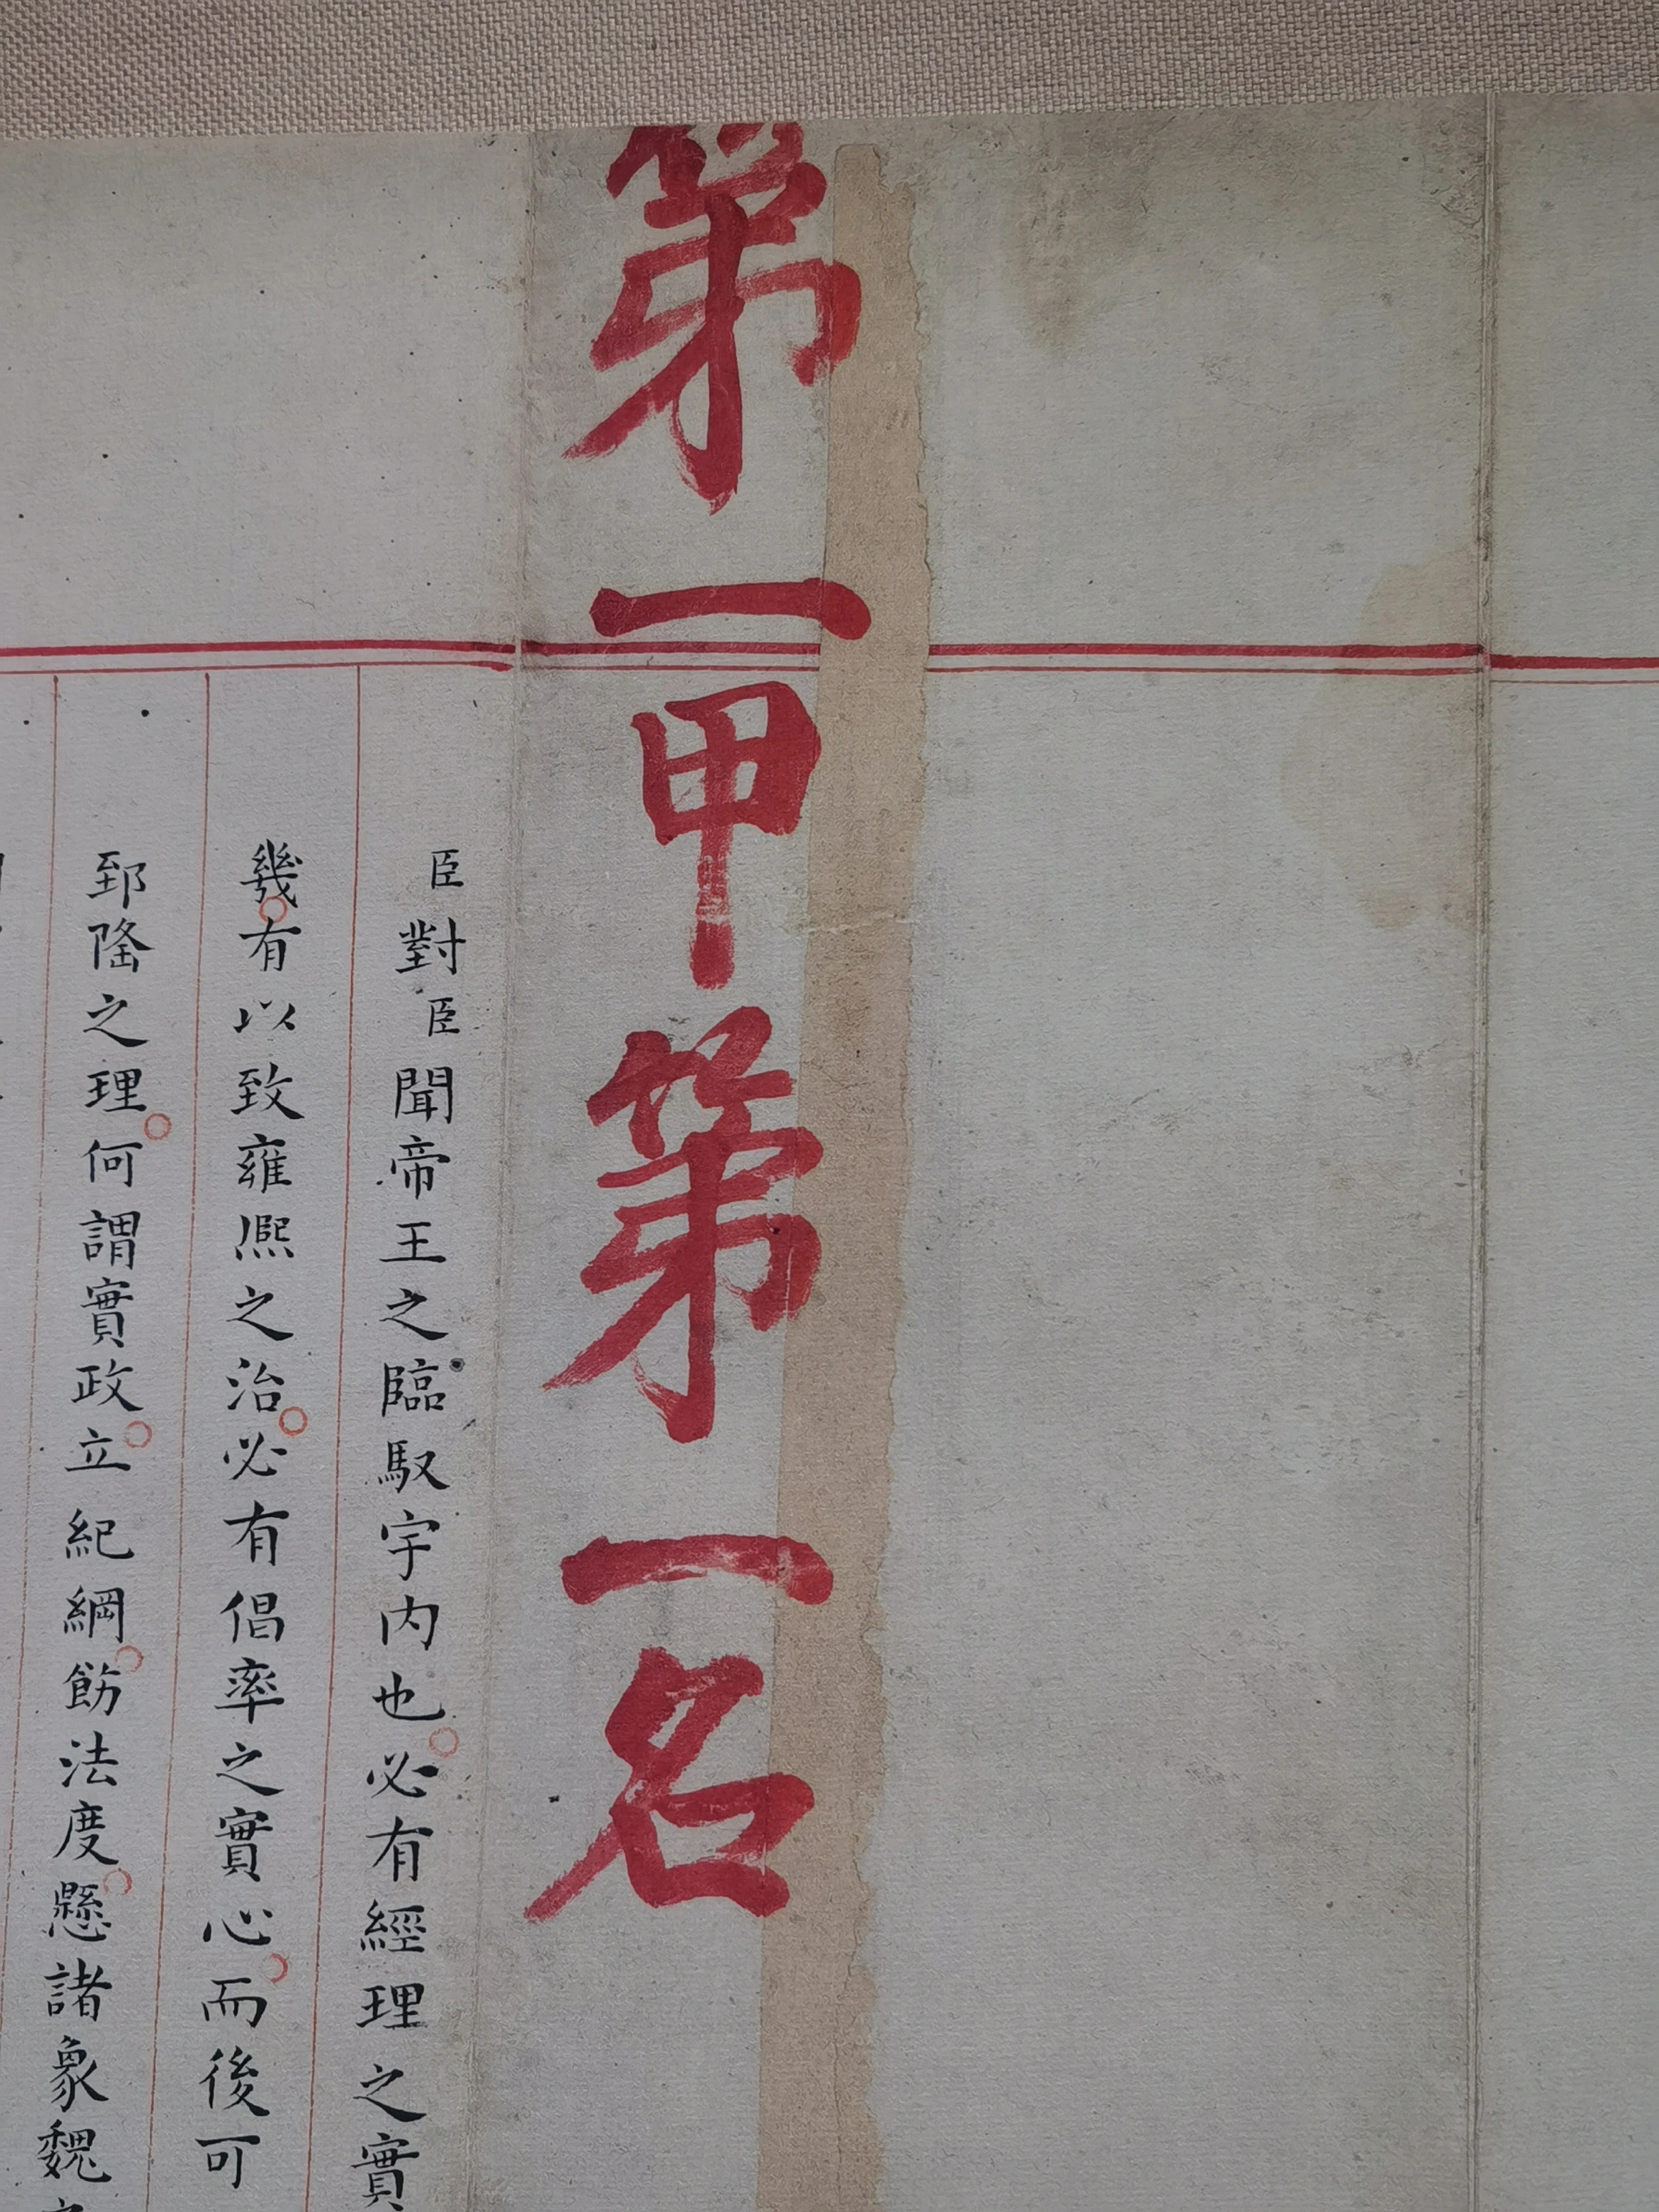 第一甲第一名
臣對臣聞帝王之臨馭宇内也必有經理之實
幾有以致雍熈之治必有倡率之實心而後可
郅隆之理何謂實政立紀綱飭法度懸諸象魏